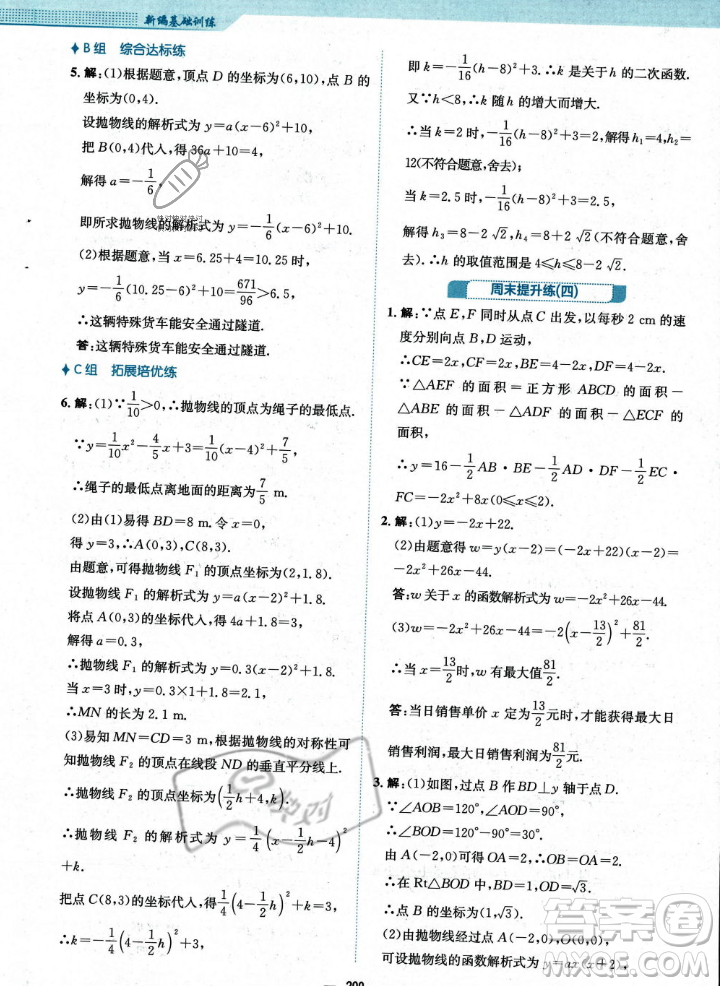 新编基础训练
B组 综合达标练
5. 解:(1)根据题意,顶点 D 的坐标为(6,10),点 B 的
坐标为(0,4).
设抛物线的解析式为 y=a(x-6)²+10,
把 B(0,4)代入,得 36a+10=4,
解得 a=-1/6,
即所求抛物线的解析式为 y=-1/6(x-6)²+10.
(2)根据题意,当 x=6.25+4=10.25 时,
y=-1/6(10.25-6)²+10=671/96>6.5,
∴这辆特殊货车能安全通过隧道.
答:这辆特殊货车能安全通过隧道.
C组 拓展培优练
6. 解:(1)∵1/10>0,∴抛物线的顶点为绳子的最低点.
∵y=1/10x²-4/5x+3=1/10(x-4)²+7/5,
∴绳子的最低点离地面的距离为7/5 m.
(2)由(1)易得 BD=8 m.令 x=0,
得 y=3,∴A(0,3),C(8,3).
由题意,可得抛物线 F₁的顶点坐标为(2,1.8).
设抛物线 F₁的解析式为 y=a(x-2)²+1.8,
将点 A(0,3)的坐标代入,得 4a+1.8=3,
解得 a=0.3,
∴抛物线 F₁的解析式为 y=0.3(x-2)²+1.8.
当 x=3 时,y=0.3×1+1.8=2.1,
∴MN 的长为 2.1 m.
(3)易知 MN=CD=3,根据抛物线的对称性可
知抛物线的顶点在线段 ND 的垂直平分线上.
∴抛物线 F₂的顶点坐标为(1/2h+4,k).
∴抛物线 F₂的解析式为 y=1/4(x-1/2h-4)²
+k.
把点 C(8,3)的坐标代入,得1/4(4-1/2h)²+k=3,
∴k=-1/4(4-1/2h)²+3,
即 k=-1/16(h-8)²+3.∴k 是关于 h 的二次函数.
又∵h<8,∴k 随 h 的增大而增大.
∴当 k=2 时,-1/16(h-8)²+3=2,解得 h₁=4,h₂=
12(不符合题意,舍去);
当 k=2.5 时,-1/16(h-8)²+3=2.5,
解得 h₃=8-2√2,h₄=8+2√2(不符合题意,舍
去).∴h 的取值范围是 4≤h≤8-2√2.
周末提升练(四)
1. 解:∵点 E,F 同时从点 C 出发,以每秒 2 cm 的速
度分别向点 B,D 运动,
∴CE=2x,CF=2x,BE=4-2x,DF=4-2x.
∵△AEF 的面积=正方形 ABCD 的面积-
△ABE 的面积-△ADF 的面积-△ECF 的
面积,
∴y=16-1/2AB·BE-1/2AD·DF-1/2EC·
FC=-2x²+8x(0≤x≤2).
2. 解:(1)y=-2x+22.
(2)由题意得 w=(-2x+22)(x-2)=
-2x²+26x-44.
答:w 关于 x 的函数解析式为 w=-2x²+26x-44.
(3)w=-2x²+26x-44=-2(x-13/2)²+81/2.
∴当 x=13/2时,w 有最大值81/2.
答:当日销售单价 x 定为13/2元时,才能获得最大日
销售利润,最大日销售利润为81/2元.
3. 解:(1)如图,过点 B 作 BD⊥y 轴于点 D.
∵∠AOB=120°,∠AOD=90°,
∴∠BOD=∠AOB-∠AOD=30°.
由 A(-2,0),可得 OA=2.∴OB=OA=2.
∴在 Rt△BOD 中,BD=1,OD=√3.
∴点 B 的坐标为(1,√3).
(2)由抛物线经过点 A(-2,0),O(0,0),
可设抛物线的函数解析式为 y=ax(x+2),
200
答案卷